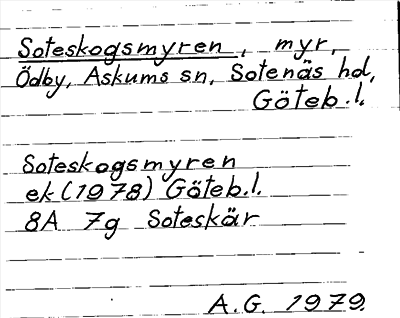 Soteskogsmyren, myr,
Ödby, Askums sn, Sotenäs hd,
Göteb.l.
Soteskogsmyren
ek (1978) Göteb.l.
8A 7g Soteskär
A.G. 1979.